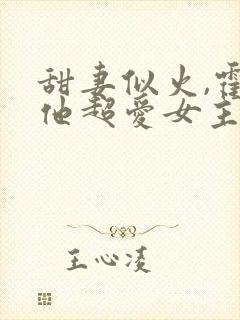 甜妻似火,霍
他超爱女主
王心凌